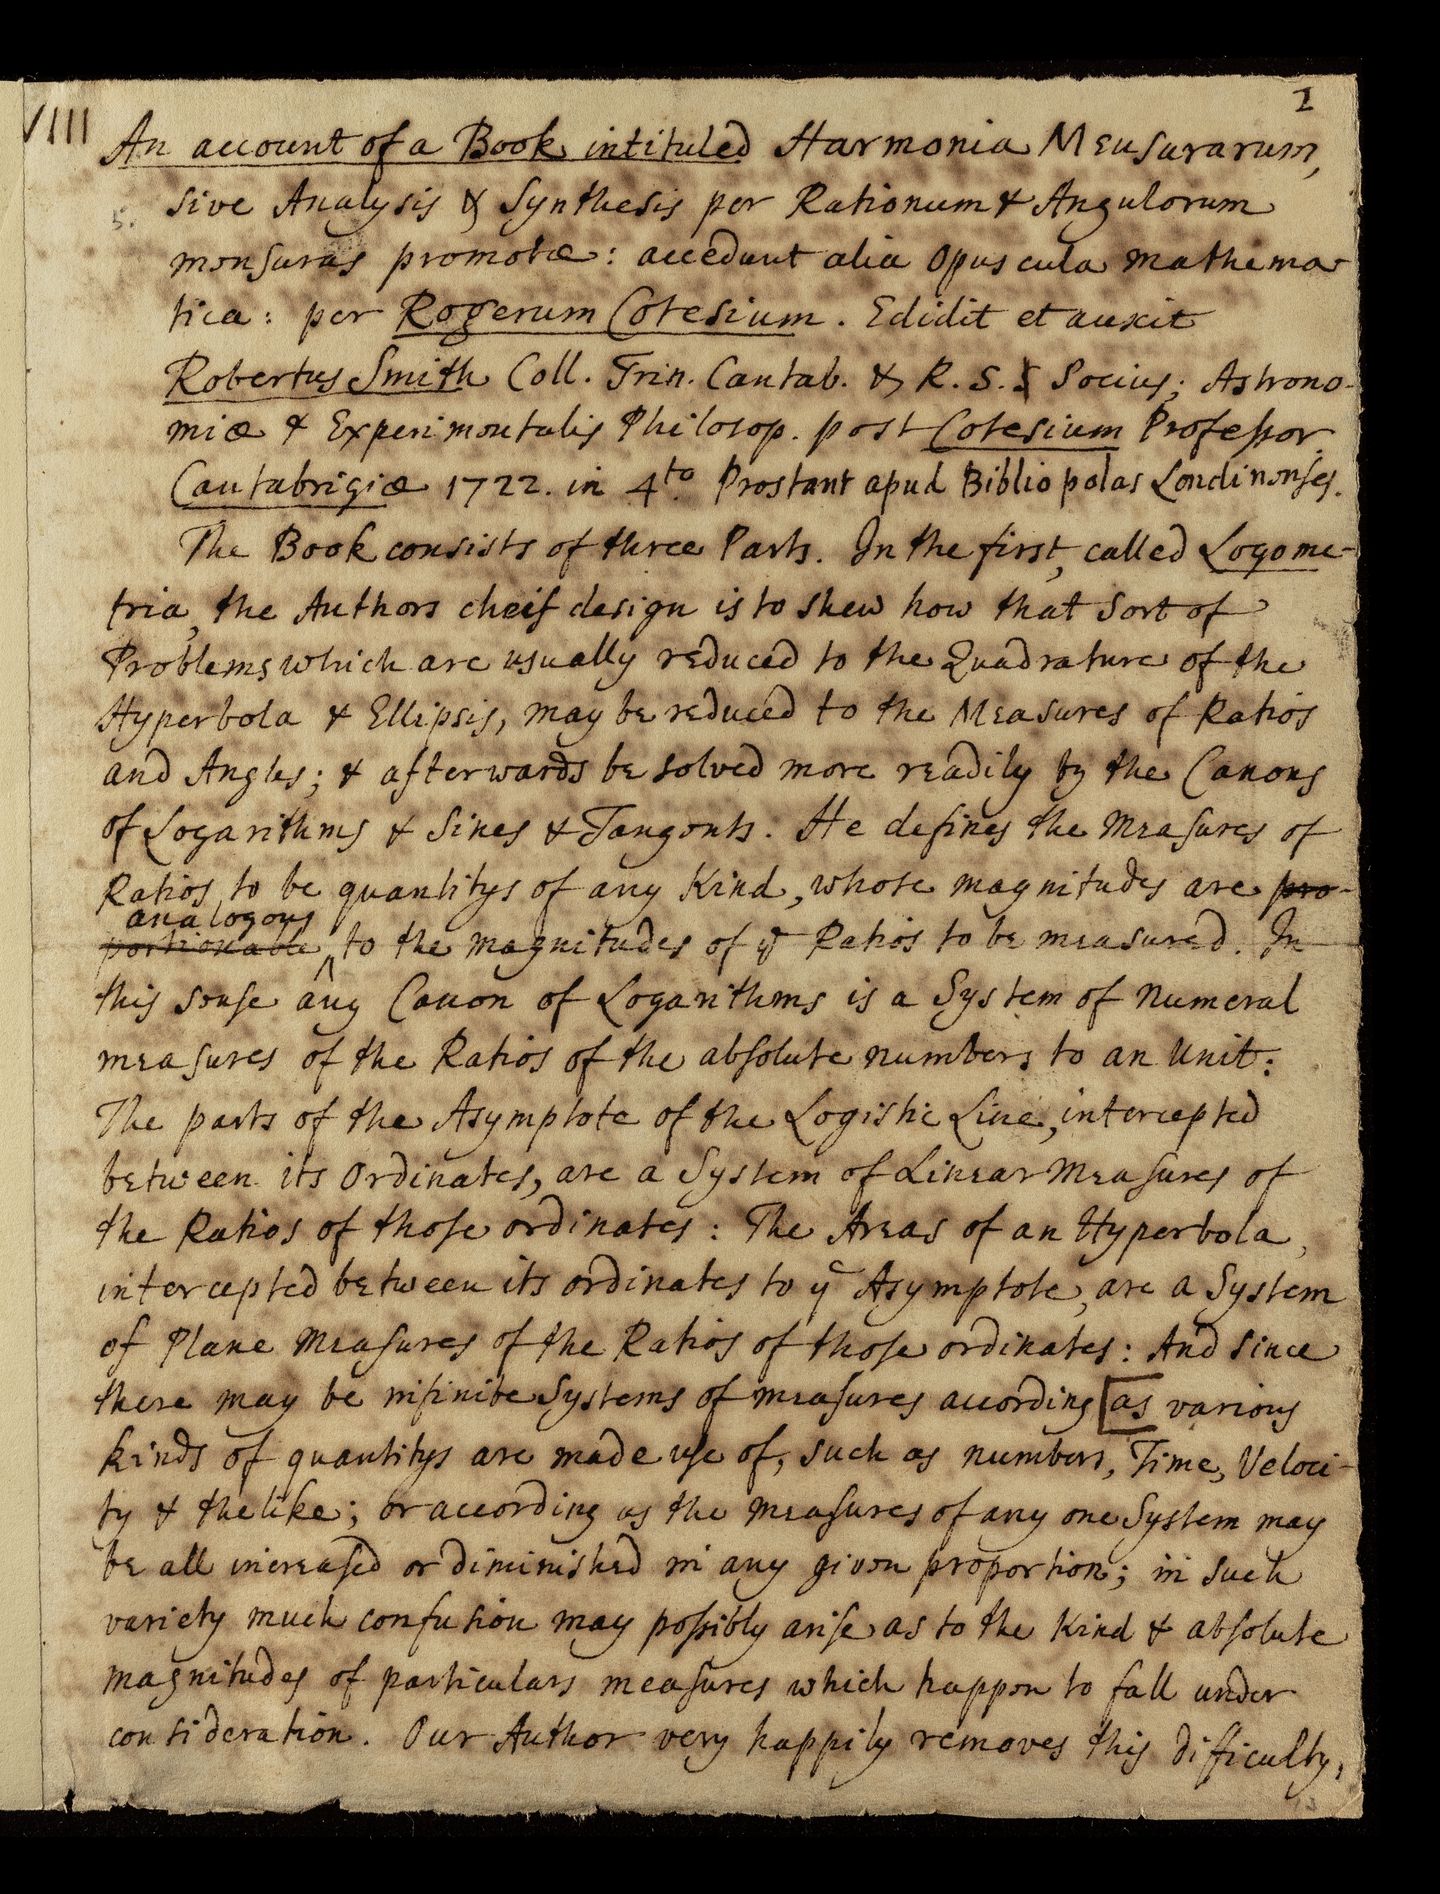 VIII
1
An account of a Book intituled Harmonia Mensurarum,
5. sive Analysis & Synthesis per Rationum & Angulorum
mensuras promotæ: accedunt alia Opuscula mathema
tica: per Rogerum Cotesium. Edidit et auxit
Robertus Smith Coll. Trin. Cantab. & R. S. Socius; Astrono-
miæ & Experimentalis Philosop. post Cotesium Professor.
Cantabrigiæ 1722. in 4to. Prostant apud Bibliopolas Londinenses.
The Book consists of three Parts. In the first, called Logome-
tria, the Authors cheif design is to shew how that sort of
Problems which are usually reduced to the Quadrature of the
Hyperbola & Ellipsis, may be reduced to the Measures of Ratios
and Angles; & afterwards be solved more readily by the Canons
of Logarithms & Sines & Tangents. He defines the Measures of
Ratios, to be quantitys of any Kind, whose magnitudes are pro-
analogous
portionable ^ to the magnitudes of ye Ratios to be measured. In
this sense any Canon of Logarithms is a System of Numeral
measures of the Ratios of the absolute numbers to an Unit:
The parts of the Asymptote of the Logistic Line, intercepted
between its Ordinates, are a System of Linear Measures of
the Ratios of those ordinates: The Areas of an Hyperbola,
intercepted between its ordinates to ye Asymptote, are a System
of Plane Measures of the Ratios of those ordinates: And since
there may be infinite Systems of measures according [as various
kinds of quantitys are made use of, such as numbers, Time, Veloci-
ty & the like; or according as the measures of any one System may
be all increased or diminished in any given proportion; in such
variety much confusion may possibly arise as to the Kind & absolute
magnitudes of particulars measures which happen to fall under
consideration. Our Author very happily removes this difficulty,